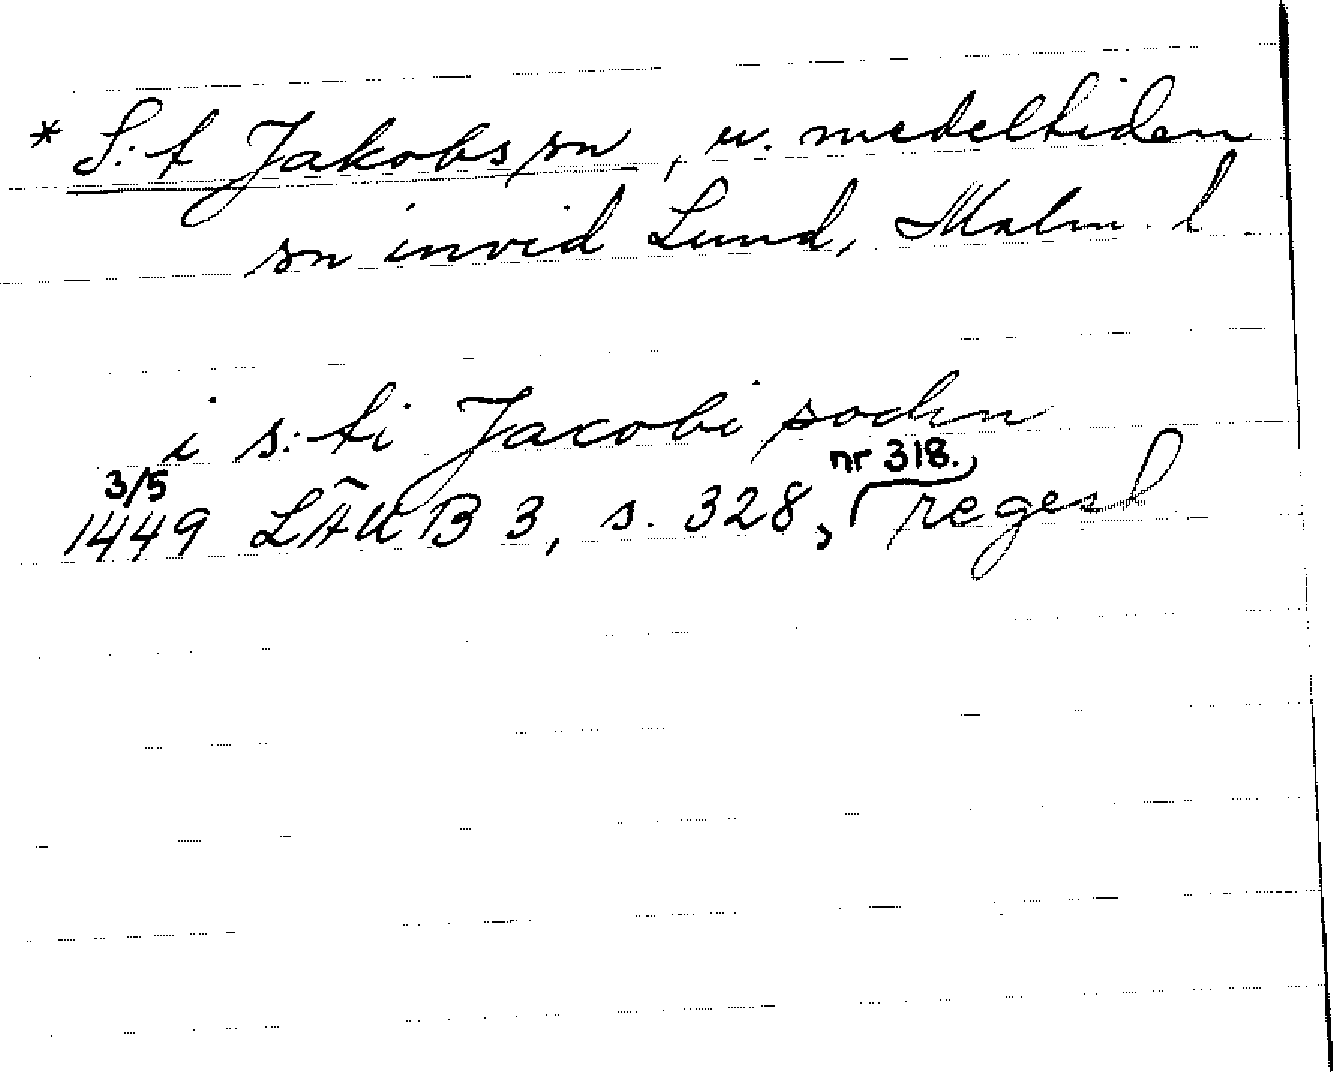 * S:t Jakobs sn, u. medeltiden
sn invid Lund, Malm. l
i s:ti Jacobi sochn
3/5 nr 318.
1449 LÄUB 3, s. 328, regest